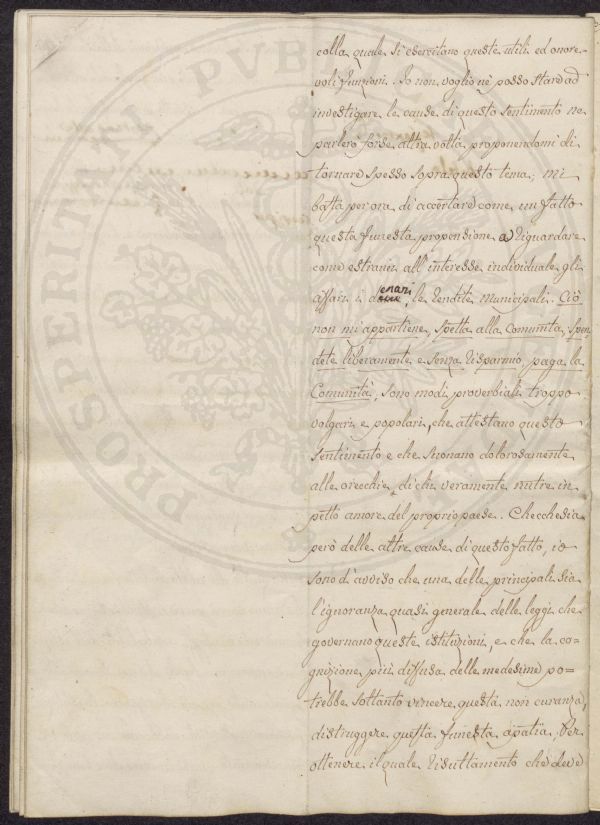 colla quale si esercitano queste utili ed onore-
voli funzioni. Io non voglio nè posso stare ad
investigare le cause di questo sentimento ne
parlerò forse altra volta proponendomi di
tornare spesso sopra questo tema, mi
basta per ora di accertare come un fatto
questa funesta propensione a riguardare
come estranei all'interesse individuale gli
affari i denari, le rendite municipali. Ciò
non mi appartiene, spetta alla Comunità, spen-
dete liberamente e senza risparmio, paga la
Comunità, sono modi proverbiali troppo
volgari e popolari, che attestano questo
sentimento e che suonano dolorosamente
alle orecchie di chi veramente nutre in
petto amore del proprio paese. Checchesia
però delle altre cause di questo fatto, io
sono d'avviso che una delle principali sia
l'ignoranza quasi generale delle leggi che
governano queste istituzioni, e che la co=
gnizione più diffusa delle medesime po=
trebbe soltanto vincere questa non curanza,
distruggere questa funesta apatia. Per
ottenere il quale risultamento che deve
PROSPERITATI PVBLICAE